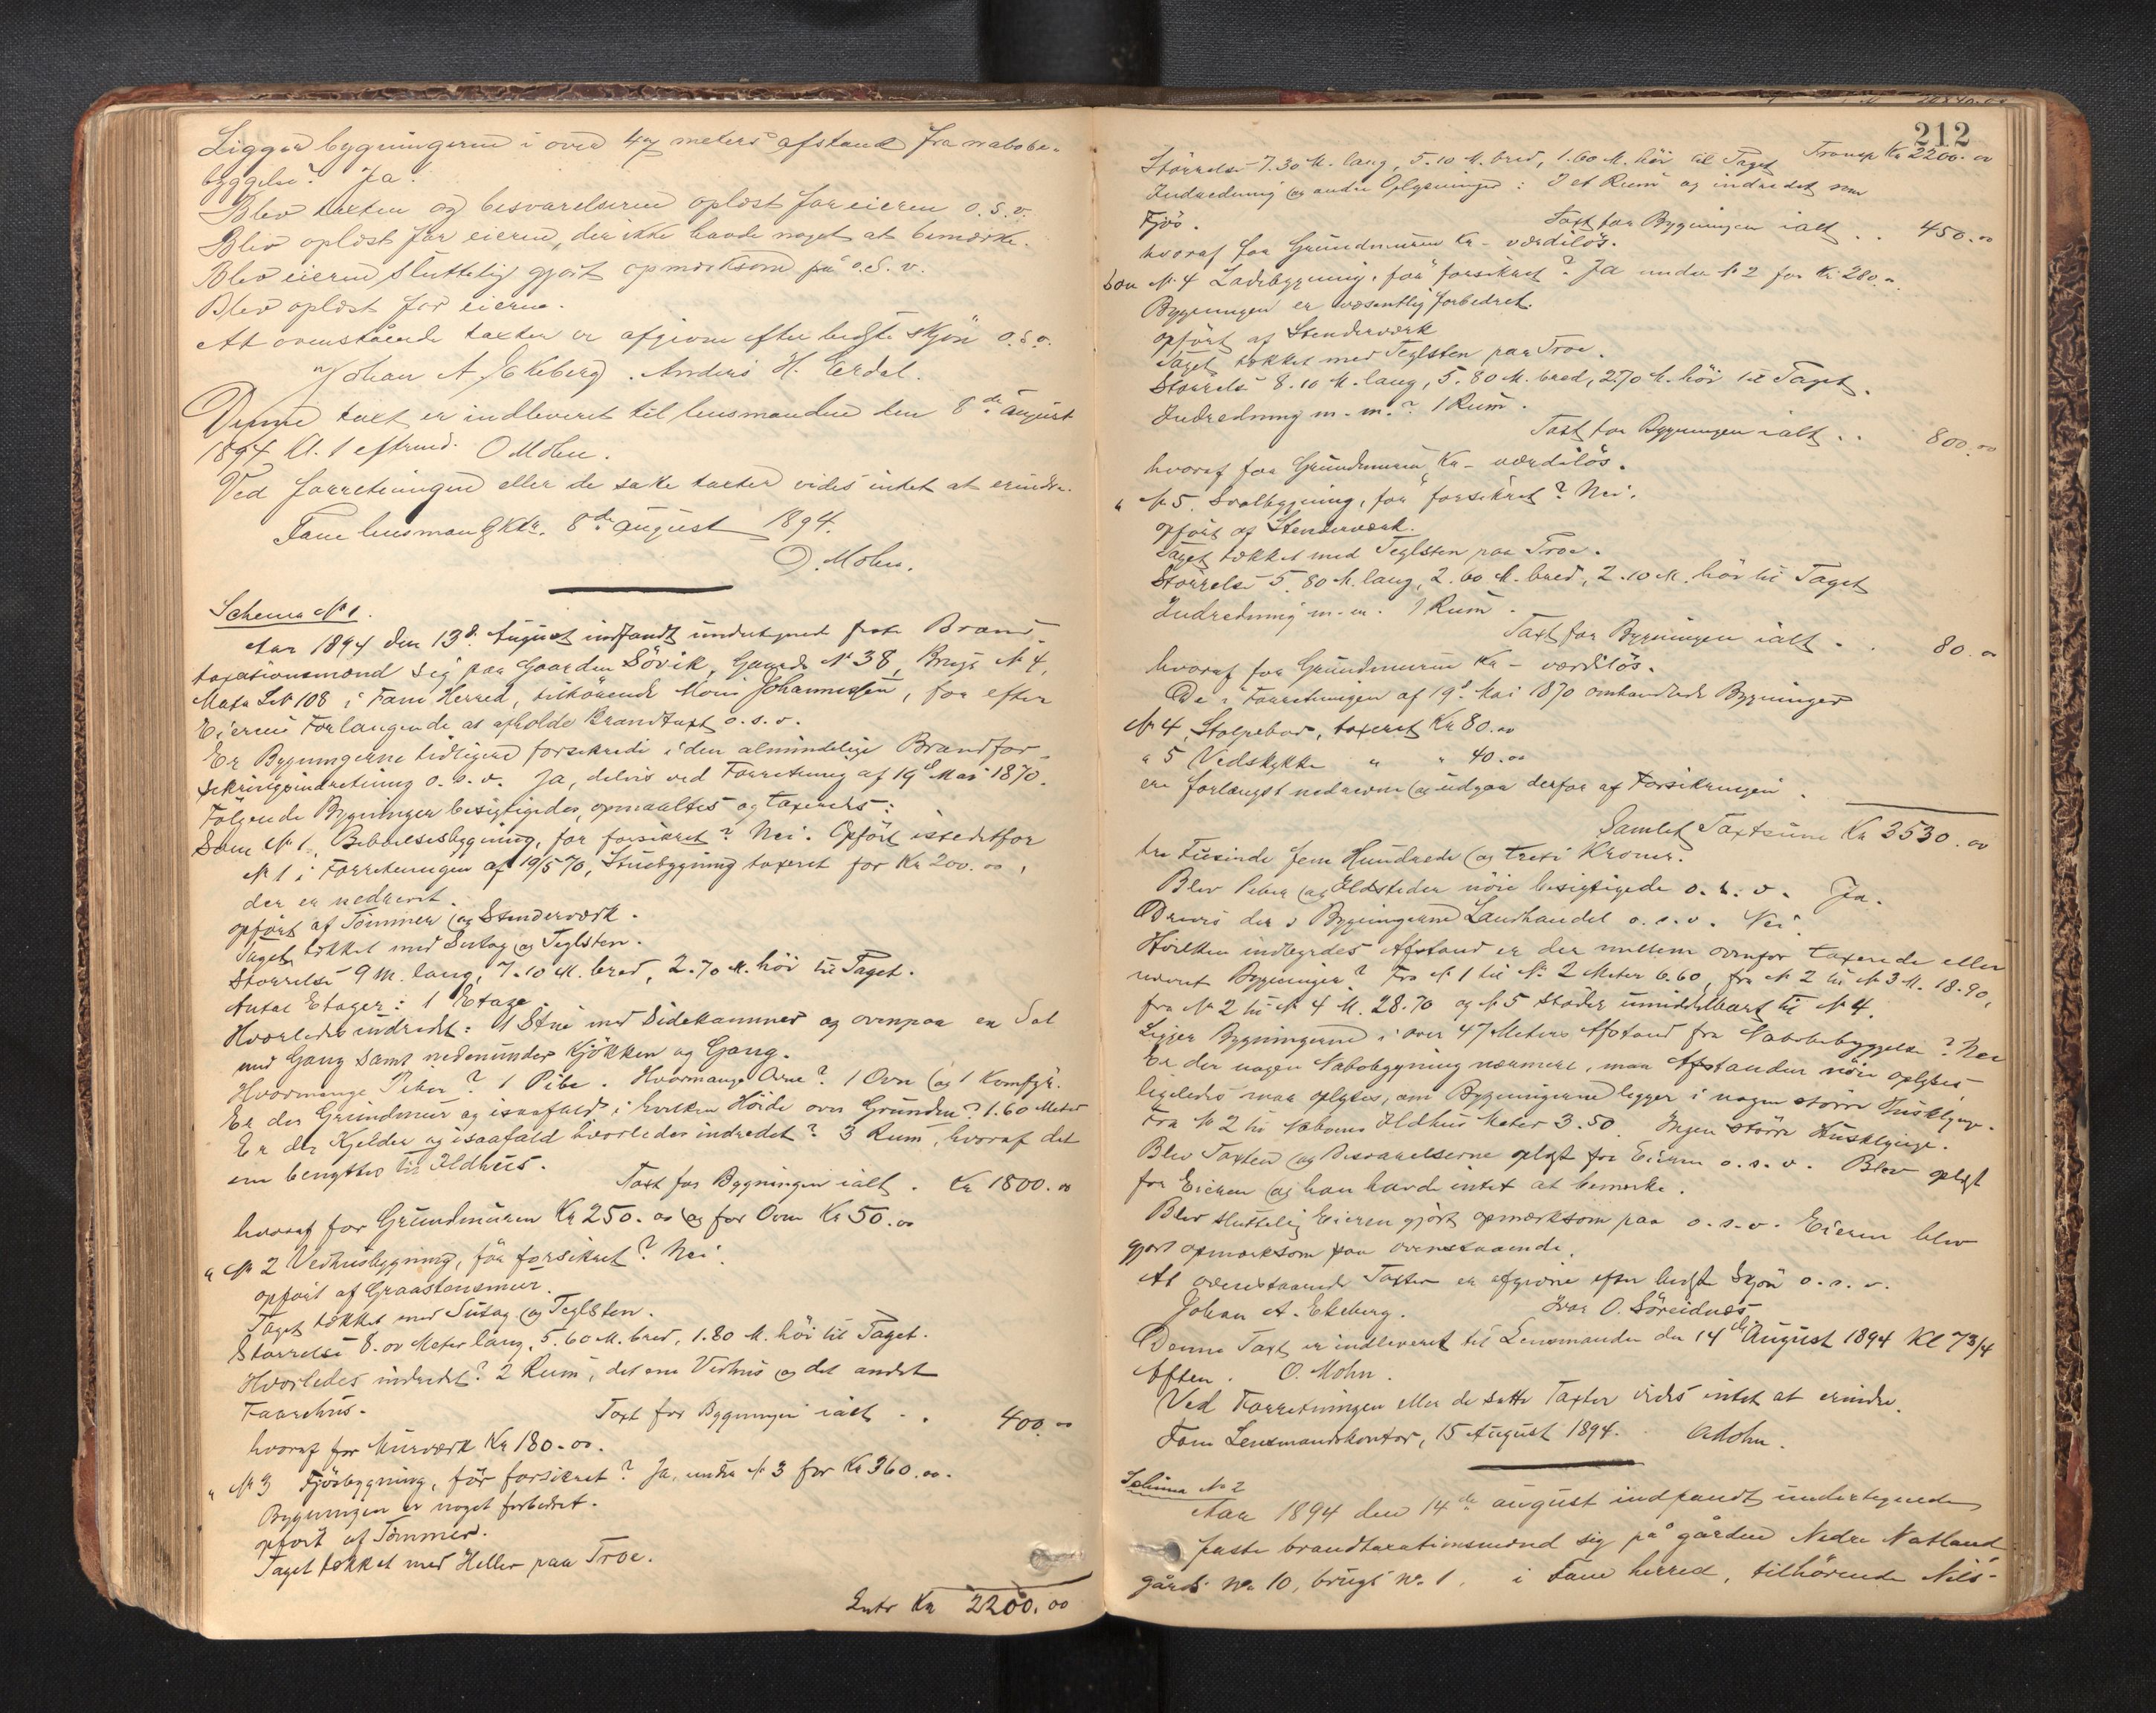 Ligger bygningerne i over 47 meters afstand fra nabobe-
byggelse? Ja.
Blev taxten og besvarelserne oplæst for eieren o.s.v.
Blev oplæst for eieren, der ikke havde noget at bemærke.
Blev eieren sluttelig gjort opmærksom på o.s.v.
Blev oplæst for eieren.
At ovenstående taxter er afgivne efter bedste skjön o.s.v.
Johan A. Ekeberg. Anders H. Erdal.
Denne taxt er indleveret til lensmanden den 8de august
1894 Kl. 1 efterm. O Mohn.
Ved forretningen eller de satte taxter vides intet at erindre.
Fane lensmandsktr. 8de august 1894.
O. Mohn.
Schema No 1.
Aar 1894 den 13de August indfandt undertegnede faste Brand-
taxationsmænd sig paa Gaarden Sövik, Gaards No 38, Brugs No 4,
Matr. L.No 108 i Fane Herred, tilhörende Mons Johannessen, for efter
Eierens Forlangende at afholde Brandtaxt o.s.v.
Er Bygningerne tidligere forsikrede i den almindelige Brandfor-
sikringsindretning o.s.v. Ja, delvis ved Forretning af 19de Mai 1870.
Følgende Bygninger besigtigedes, opmaaltes og taxeredes:
Som No 1. Beboelsesbygning, för forsikret? Nei. Opfört istedetfor
No 1 i Forretningen af 19/5 70, Stuebygning taxeret for Kr 200.00,
der er nedrevet.
opfört af Tömmer og Stenderværk.
Taget tækket med Sutag og Teglsten.
Störrelse 9 M. lang, 7.10 M. bred, 2.70 M. höi til Taget.
Antal Etager: 1 Etage
Hvorledes indredet: 1 Stue med Sidekammer og ovenpaa en Sal
med Gang samt nedenunder Kjökken og Gang.
Hvormange Piber? 1 Pibe. Hvormange Ovne? 1 Ovn og 1 Komfyr.
Er der Grundmur og isaafald i hvilken Höide over Grunden? 1.60 Meter
Er der Kjelder og isaafald hvorledes indredet? 3 Rum, hvoraf det
ene benyttes til Ildhus.
Taxt for Bygningen ialt . Kr 1800.00
hvoraf for Grundmuren Kr 250.00 og for Ovn Kr 50.00
" No 2 Vedhusbygning, för forsikret? Nei.
opfört af Graastensmur.
Taget tækket med Sutag og Teglsten.
Störrelse 8.00 Meter lang, 5.60 M. bred, 1.80 M. höi til Taget.
Hvorledes indredet? 2 Rum, det ene Vedhus og det andet
Faarehus.
Taxt for Bygningen ialt . . 400.00
hvoraf for Murværk Kr 180.00.
" No 3 Fjösbygning, för forsikret? Ja, under No 3 for Kr 360.00.
Bygningen er noget forbedret.
opfört af Tömmer.
Taget tækket med Heller paa Troe.
Latr Kr 2200.00
212
Transp Kr 2200.00
Störrelse 7.30 M. lang, 5.10 M. bred, 1.60 M. höi til Taget
Indredning og andre Oplysninger: 1 et Rum og indredet som
Fjös.
Taxt for Bygningen ialt . . 450.00
hvoraf for Grundmuren Kr – værdilös.
Som No 4 Ladebygning, för forsikret? Ja under No 2 for Kr. 280.00.
Bygningen er væsentlig forbedret.
opfört af Stenderværk
Taget tækket med Teglsten paa Troe.
Störrelse 8.10 M. lang, 5.80 M. bred, 2.70 M. höi til Taget.
Indredning m.m.? 1 Rum.
Taxt for Bygningen ialt . . 800.00
hvoraf for Grundmuren Kr – værdilös.
" No 5. Svalbygning, för forsikret? Nei.
opfört af Stenderværk.
Taget tækket med Teglsten paa Troe.
Störrelse 5.80 M. lang, 2.60 M. bred, 2.10 M. höi til Taget
Indredning m.m. 1 Rum.
Taxt for Bygningen ialt . . 80.00
hvoraf for Grundmuren Kr – værdilös.
De i Forretningen af 19de Mai 1870 omhandlede Bygninger
No 4, Stolpebod, taxeret Kr 80.00
" 5 Vedskykke " " 40.00
ere forlængst nedrevne og udgaa derfor af Forsikringen.
Samlet Taxtsum Kr 3530.00
tre Tusinde fem Hundrede og treti Kroner.
Blev Piber og Ildsteder nöie besigtigede o.s.v. Ja.
Drives der i Bygningerne Landhandel o.s.v. Nei.
Hvilken indbyrdes Afstand er der mellem ovenfor taxerede eller
nævnte Bygninger? Fra No 1 til No 2 Meter 6.60, fra No 2 til No 3 M. 18.90,
fra No 2 til No 4 M. 28.70 og No 5 stöder umiddelbart til No 4.
Ligger Bygningerne i over 47 Meters Afstand fra Nabobebyggelse? Nei
Er der nogen Nabobygning nærmere, maa Afstanden nöie oplyses
ligeledes maa oplyses, om Bygningerne ligger i nogen större Husklynge.
Fra No 2 til Naboens Ildhus Meter 3.50. Ingen större Husklynge.
Blev Taxten og Besvarelserne oplæst for Eieren o.s.v. Blev oplæst
for Eieren og han havde intet at bemerke.
Blev sluttelig Eieren gjort opmærksom paa o.s.v. Eieren blev
gjort opmærksom paa ovenstaaende.
At ovenstaaende Taxter er afgivne efter bedste Skjön o.s.v.
Johan A. Ekeberg. Ivar O. Söreidnes
Denne Taxt er indleveret til Lensmanden den 14de August 1894 Kl 7 3/4
Aften. O. Mohn.
Ved Forretningen eller de satte Taxter vides intet at erindre.
Fane Lensmandskontor, 15 August 1894. O Mohn.
Schema No 2
Aar 1894 den 14de august indfandt undertegnede
faste brandtaxationsmænd sig på gården Nedre Natland
gårds No. 10, brugs No. 1, i Fane herred, tilhörende Nils